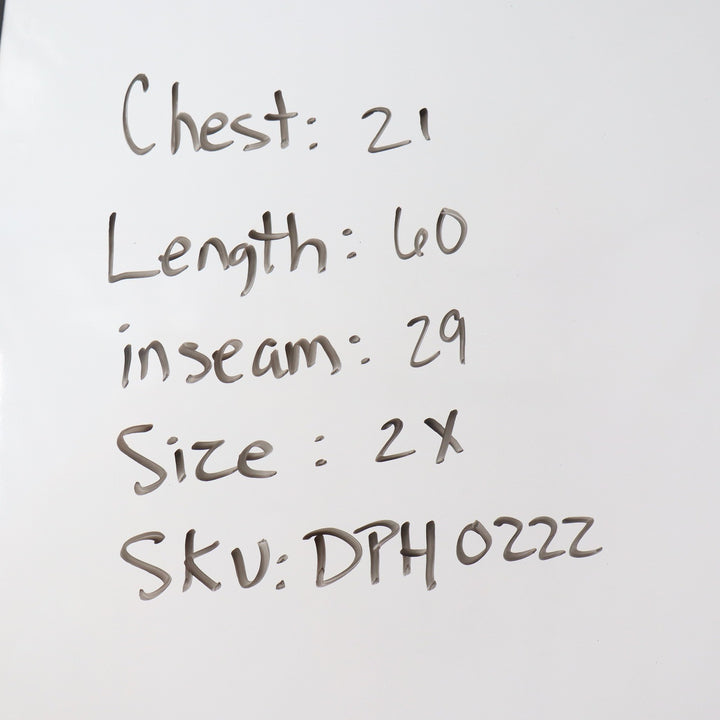 Chest: 21
Length: 60
inseam: 29
Size: 2X
SKU: DPH0222